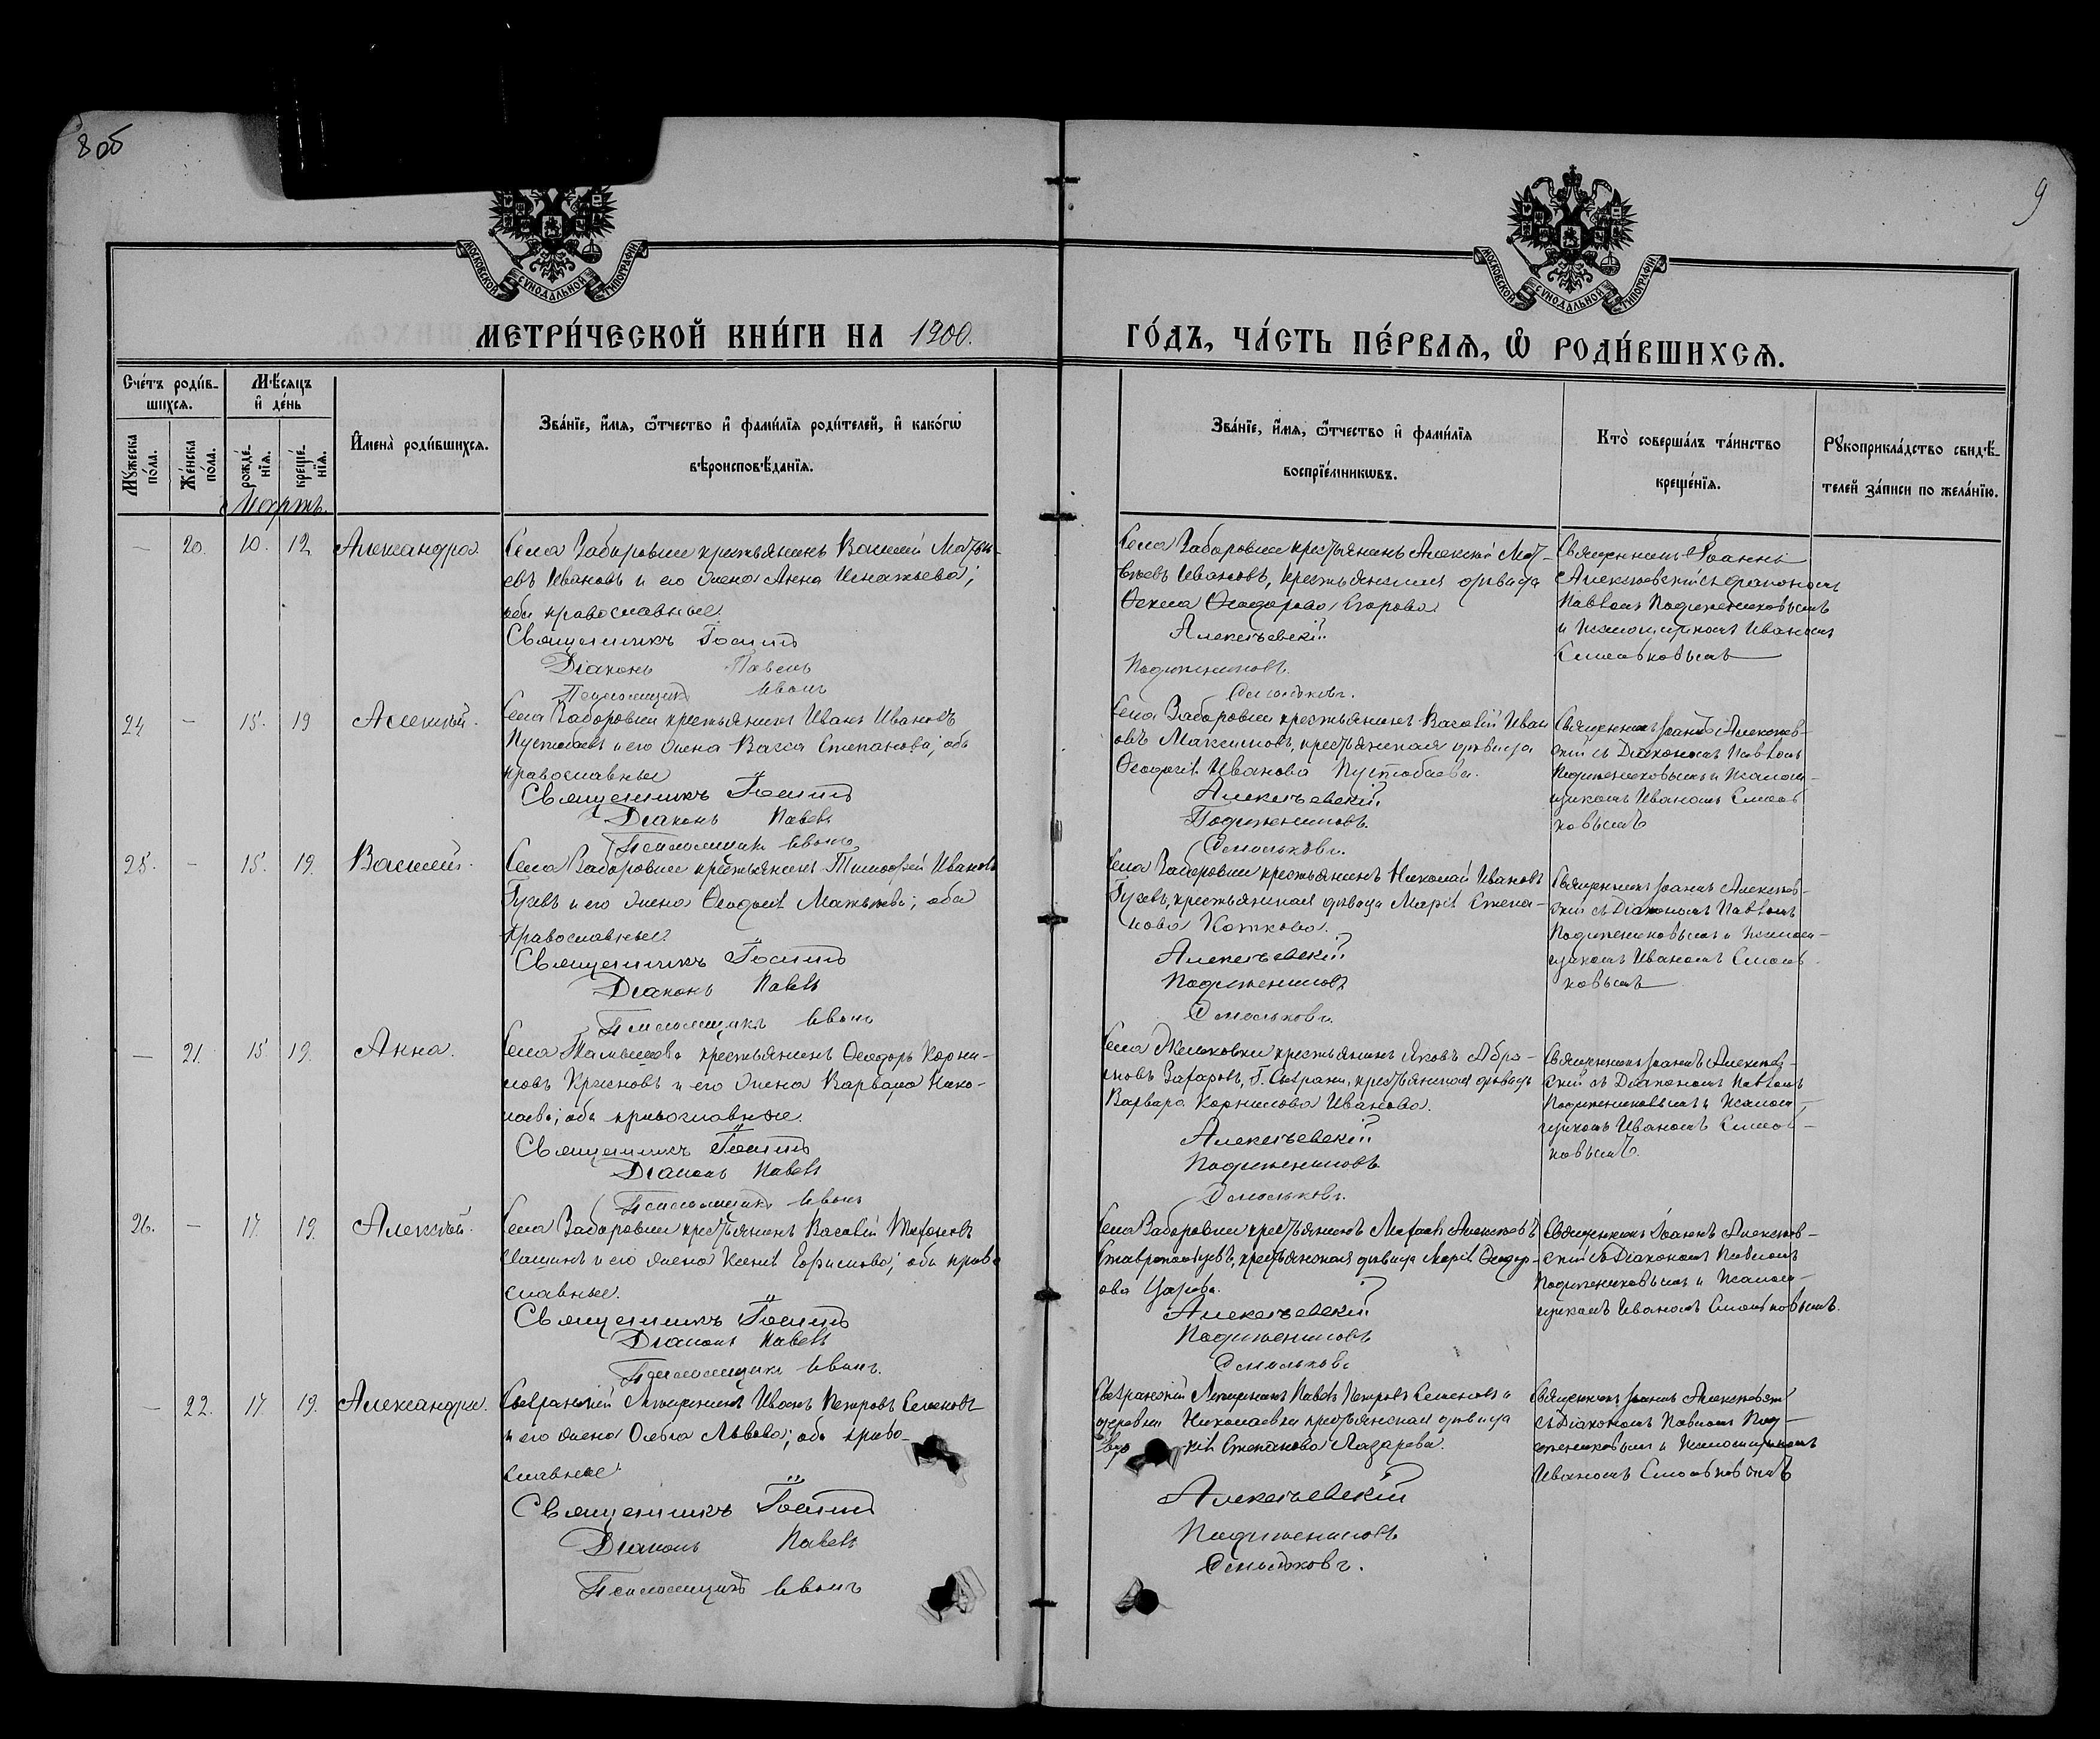 8 об
9
МОСКОВСКОЙ СѴНОДАЛЬНОЙ ТИПОГРАФІИ
МОСКОВСКОЙ СѴНОДАЛЬНОЙ ТИПОГРАФІИ
МЕТРИ́ЧЕСКОЙ КНИ́ГИ НА 1900.
ГО́ДЪ, ЧА́СТЬ ПЕ́РВАѦ, Ѡ҆ РОДИ́ВШИХСѦ.
Сче́тъ роди́в-
шихсѧ.
Мѣ́сѧцъ
и҆ де́нь
Мꙋ́жеска
по́ла.
Же́нска
по́ла.
рожде́-
нїѧ.
креще́-
нїѧ.
И҆мена̀ роди́вшихсѧ.
Зва́нїе, и҆́мѧ, ѻ҆́тчество и҆ фами́лїѧ роди́телей, и҆ како́гѡ
вѣроисповѣ́данїѧ.
Зва́нїе, и҆́мѧ, ѻ҆́тчество и҆ фами́лїѧ
воспрїе́мникѡвъ.
Кто̀ соверша́лъ та́инство
креще́нїѧ.
Рꙋкоприкла́дство свидѣ́-
телей за́писи по жела́нїю.
Мартъ.
— 20. 10. 12 Александра.
Села Заборовки крестьянинъ Василий Матвѣ-
евъ Ивановъ и его жена Анна Игнатьева;
оба православные.
Священникъ Іоаннъ
Діаконъ Павелъ
Псаломщикъ Иванъ
Села Заборовки крестьянинъ Алексѣй Мат-
вѣевъ Ивановъ, крестьянская дѣвица
Ѳекла Ѳеодорова Егорова
Алексѣевскій
Подлжениковъ
Смольковъ.
Священникъ Іоаннъ
Алексѣевскій съ діакономъ
Павломъ
и псаломщикомъ Иваномъ
Смольковымъ
24 — 15. 19 Алексѣй.
Села Заборовки крестьянинъ Иванъ Ивановъ
Пустобаевъ и его жена Васса Степанова; оба
православные
Священникъ Іоаннъ
Діаконъ Павелъ
Псаломщикъ Иванъ
Села Заборовки крестьянинъ Василій Иван
овъ Максимовъ, крестьянская дѣвица
Ѳеодосія Иванова Пустобаева.
Алексѣевскій
Смольковъ.
Священникъ Іоаннъ Алексѣев-
скій съ Діакономъ Павломъ
и псалом-
щикомъ Иваномъ Смоль
ковымъ
25. — 15. 19. Василий.
Села Заборовки крестьянинъ Тимофей Ивановъ
Гусевъ и его жена Ѳеодосія Матвѣева; оба
православные.
Священникъ Іоаннъ
Діаконъ Павелъ
Псаломщикъ Иванъ
Села Заборовки крестьянинъ Николай Ивановъ
Гусевъ, крестьянская дѣвица Марія Степа-
нова Каткова.
Алексѣевскій
Смольковъ.
Священникъ Іоаннъ Алексѣев-
скій съ Діакономъ Павломъ
и псалом-
щикомъ Иваномъ Смоль-
ковымъ
— 21. 15 19. Анна.
крестьянинъ Ѳеодоръ Корни-
ловъ и его жена Варвара Нико-
лаева; оба православные.
Священникъ Іоаннъ
Діаконъ Павелъ
Псаломщикъ Иванъ
крестьянинъ Яковъ Абра-
мовъ Захаровъ, Г. Сызрани, крестьянская дѣвица
Варвара Корнилова Иванова.
Алексѣевскій
Смольковъ.
Священникъ Іоаннъ Алексѣев-
скій съ Діакономъ Павломъ
и псалом-
щикомъ Иваномъ Смоль-
ковымъ.
26. — 17. 19. Алексѣй.
Села Заборовки крестьянинъ Василій
и его жена Ксенія Ефимова; оба право
славные.
Священникъ Іоаннъ
Діаконъ Павелъ
Псаломщикъ Иванъ.
Села Заборовки крестьянинъ Алексѣевъ
крестьянская дѣвица Марія Ѳеодор-
ова
Алексѣевскій
Смольковъ
Священникъ Іоаннъ Алексѣев-
скій съ Діакономъ Павломъ
и псалом-
щикомъ Иваномъ Смольковымъ.
— 22. 17. 19. Александра.
Сызранскій Иванъ Петровъ Семеновъ
и его жена Ольга Львова; оба право-
славные.
Священникъ Іоаннъ
Діаконъ Павелъ
Псаломщикъ Иванъ
Сызранскій Павелъ Петровъ Семеновъ и
деревни Николаевки крестьянская дѣвица
Степанова Лазарева.
Алексѣевскій
Смольковъ.
Священникъ Іоаннъ Алексѣевскій
съ Діакономъ Павломъ
и псаломщикомъ
Иваномъ Смольковымъ